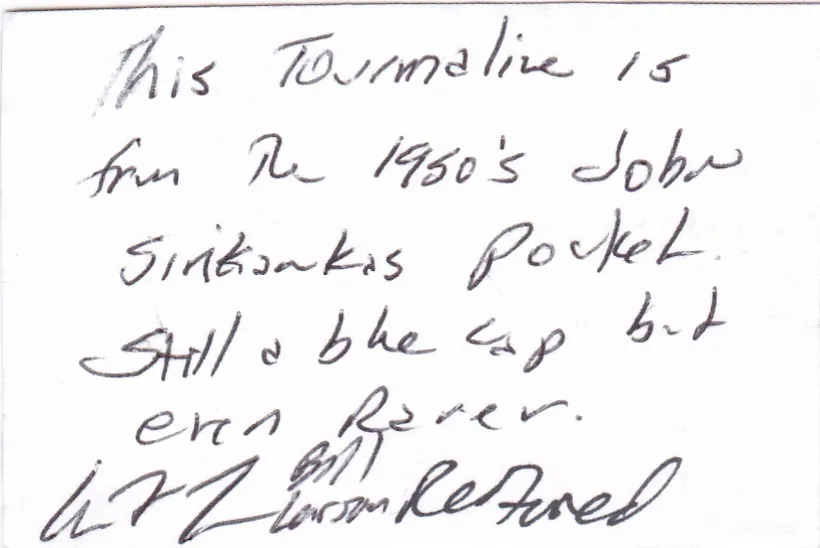 This Tourmaline is
from The 1950's John
Sinkankas Pocket.
Still a blue cap but
even Rarer.
Bill
Larson Restored